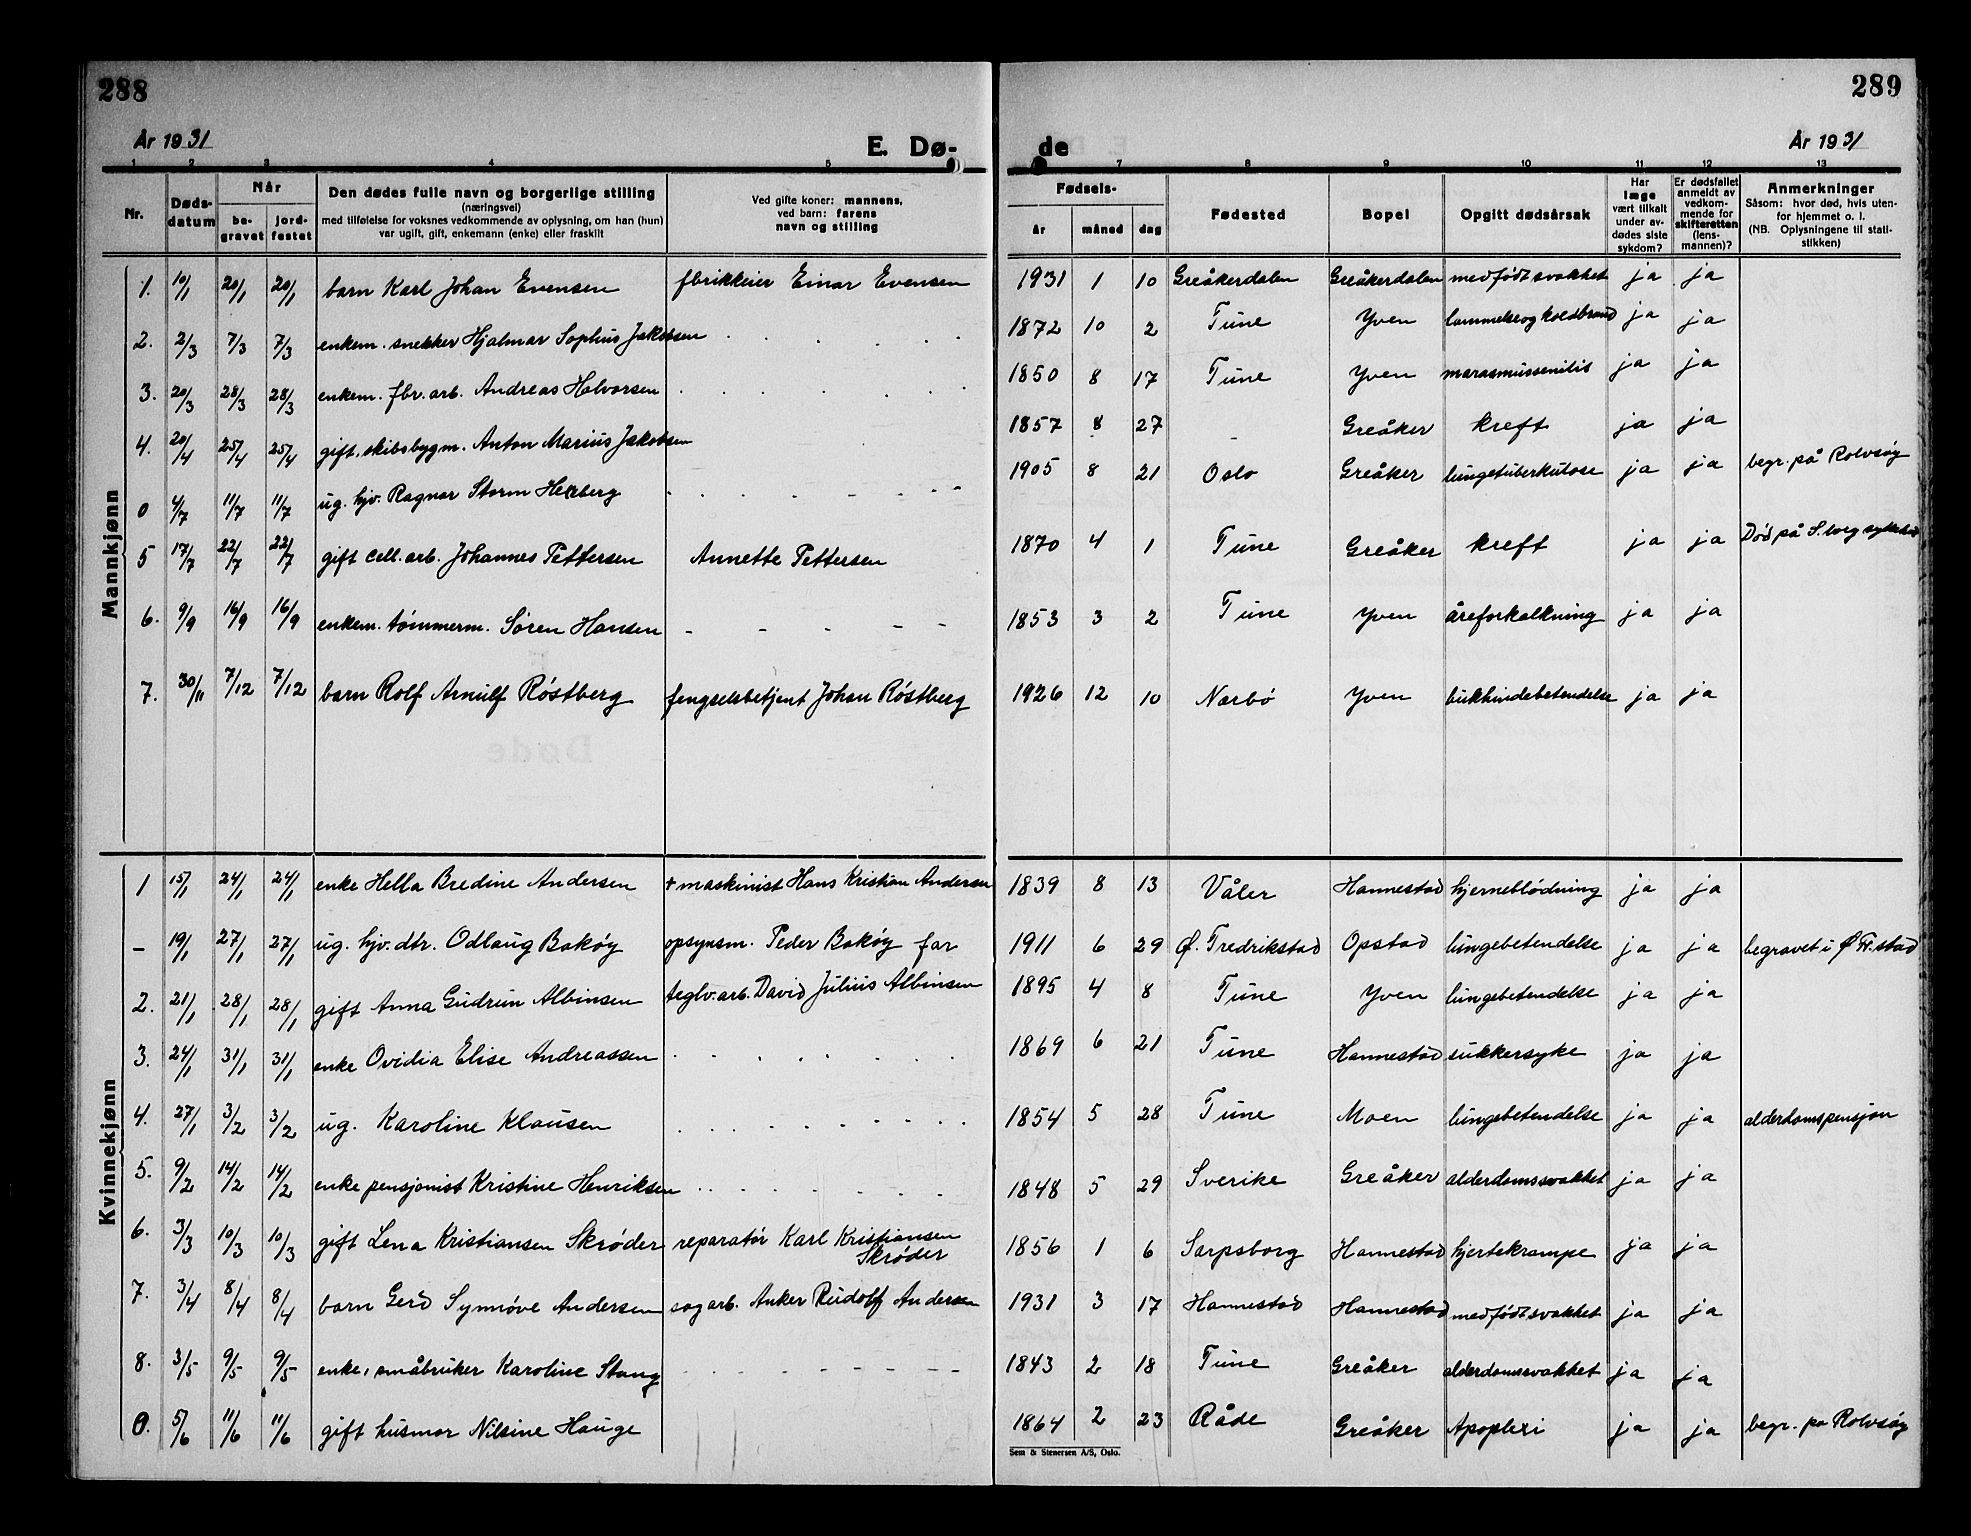 288
År 1931
E. Dø-
1 2 3 4 5
Nr.
Døds-
datum
Når
be-
gravet
jord-
festet
Den dødes fulle navn og borgerlige stilling
(næringsvei)
med tilføielse for voksnes vedkommende av oplysning, om han (hun)
var ugift, gift, enkemann (enke) eller fraskilt
Ved gifte koner: mannens,
ved barn: farens
navn og stilling
Mannkjønn
1. 10/1 20/1 20/1 barn Karl Johan Evensen fbrikkeier Einar Evensen
2. 2/3 7/3 7/3 enkem. snekker Hjalmar Sophus Jakobsen
3. 20/3 28/3 28/3 enkem. fbr. arb. Andreas Halvorsen
4. 20/4 25/4 25/4 gift, skibsbygm. Anton Marius Jakobsen
0 4/7 11/7 11/7 ug. hjv. Ragnar Storm Herzberg
5 17/7 22/7 22/7 gift cell. arb. Johannes Pettersen Annette Pettersen
6. 9/9 16/9 16/9 enkem. tømmerm. Søren Hansen
7. 30/11 7/12 7/12 barn Rolf Arnulf Røstberg fengselsbetjent Johan Røstberg
Kvinnekjønn
1 15/1 24/1 24/1 enke Hella Bredine Andersen + maskinist Hans Kristian Andersen
- 19/1 27/1 27/1 ug. hjv. dtr. Odlaug Bakøy opsynsm. Peder Bakøy far
2. 21/1 28/1 28/1 gift Anna Gudrun Albinsen teglv. arb. David Julius Albinsen
3. 24/1 31/1 31/1 enke Ovidia Elise Andreassen
4. 27/1 3/2 3/2 ug. Karoline Klausen
5. 9/2 14/2 14/2 enke pensjonist Kristine Henriksen
6. 3/3 10/3 10/3 gift Lena Kristiansen Skrøder reparatør Karl Kristiansen
Skrøder
7. 3/4 8/4 8/4 barn Gerd Synnøve Andersen sagarb. Anker Rudolf Andersen
8. 3/5 9/5 9/5 enke, småbruker Karoline Stang
0. 5/6 11/6 11/6 gift husmor Nilsine Hauge
289
de
År 1931
7 8 9 10 11 12 13
Fødsels-
år måned dag
Fødested
Bopel
Opgitt dødsårsak
Har
læge
vært tilkalt
under av-
dødes siste
sykdom?
Er dødsfallet
anmeldt av
vedkom-
mende for
skifteretten
(lens-
mannen)?
Anmerkninger
Såsom: hvor død, hvis uten-
for hjemmet o. l.
(NB. Oplysningene til stati-
stikken)
1931 1 10 Greåkerdalen Greåkerdalen medfødt svakhet ja ja
1872 10 2 Tune Yven lammelse og koldbrand ja ja
1850 8 17 Tune Yven marasmus senilis ja ja
1857 8 27 - Greåker kreft ja ja
1905 8 21 Oslo Greåker lungetuberkulose ja ja begr. på Rolvsøy
1870 4 1 Tune Greåker kreft ja ja Død på S.borg sykehus
1853 3 2 Tune Yven åreforkalkning ja ja
1926 12 10 Nærbø Yven bukhindebetendelse ja ja
1839 8 13 Våler Hannestad hjerneblødning ja ja
1911 6 29 Ø. Fredrikstad Opstad lungebetendelse ja ja begravet i Ø Fr.stad
1895 4 8 Tune Yven lungebetendelse ja ja
1869 6 21 Tune Hannestad sukkersyke ja ja
1854 5 28 Tune Moen lungebetendelse ja ja alderdomspensjon
1848 5 29 Sverike Greåker alderdomssvakhet ja ja
1856 1 6 Sarpsborg Hannestad hjertekrampe ja ja
1931 3 17 Hannestad Hannestad medfødt svakhet ja ja
1843 2 18 Tune Greåker alderdomssvakhet ja ja
1864 2 23 Råde Greåker Apoplexi ja ja begr. på Rolvsøy
Sem & Stenersen A/S, Oslo.